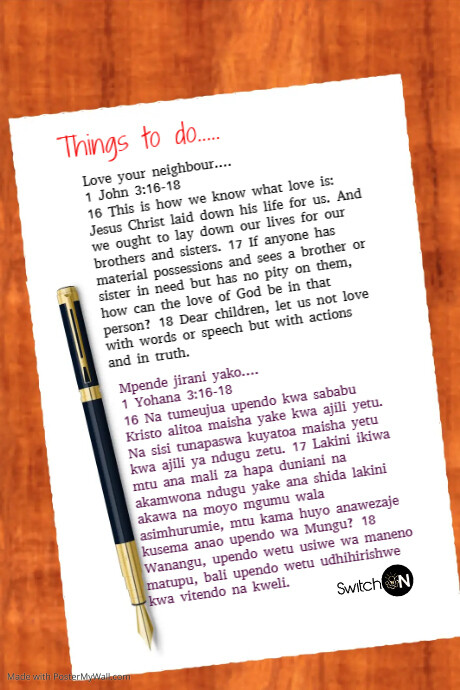 Things to do.....
Love your neighbour....
1 John 3:16-18
16 This is how we know what love is:
Jesus Christ laid down his life for us. And
we ought to lay down our lives for our
brothers and sisters. 17 If anyone has
material possessions and sees a brother or
sister in need but has no pity on them,
how can the love of God be in that
person? 18 Dear children, let us not love
with words or speech but with actions
and in truth.
Mpende jirani yako....
1 Yohana 3:16-18
16 Na tumeujua upendo kwa sababu
Kristo alitoa maisha yake kwa ajili yetu.
Na sisi tunapaswa kuyatoa maisha yetu
kwa ajili ya ndugu zetu. 17 Lakini ikiwa
mtu ana mali za hapa duniani na
akamwona ndugu yake ana shida lakini
akawa na moyo mgumu wala
asimhurumie, mtu kama huyo anawezaje
kusema anao upendo wa Mungu? 18
Wanangu, upendo wetu usiwe wa maneno
matupu, bali upendo wetu udhihirishwe
kwa vitendo na kweli.
SwitchON
Made with PosterMyWall.com